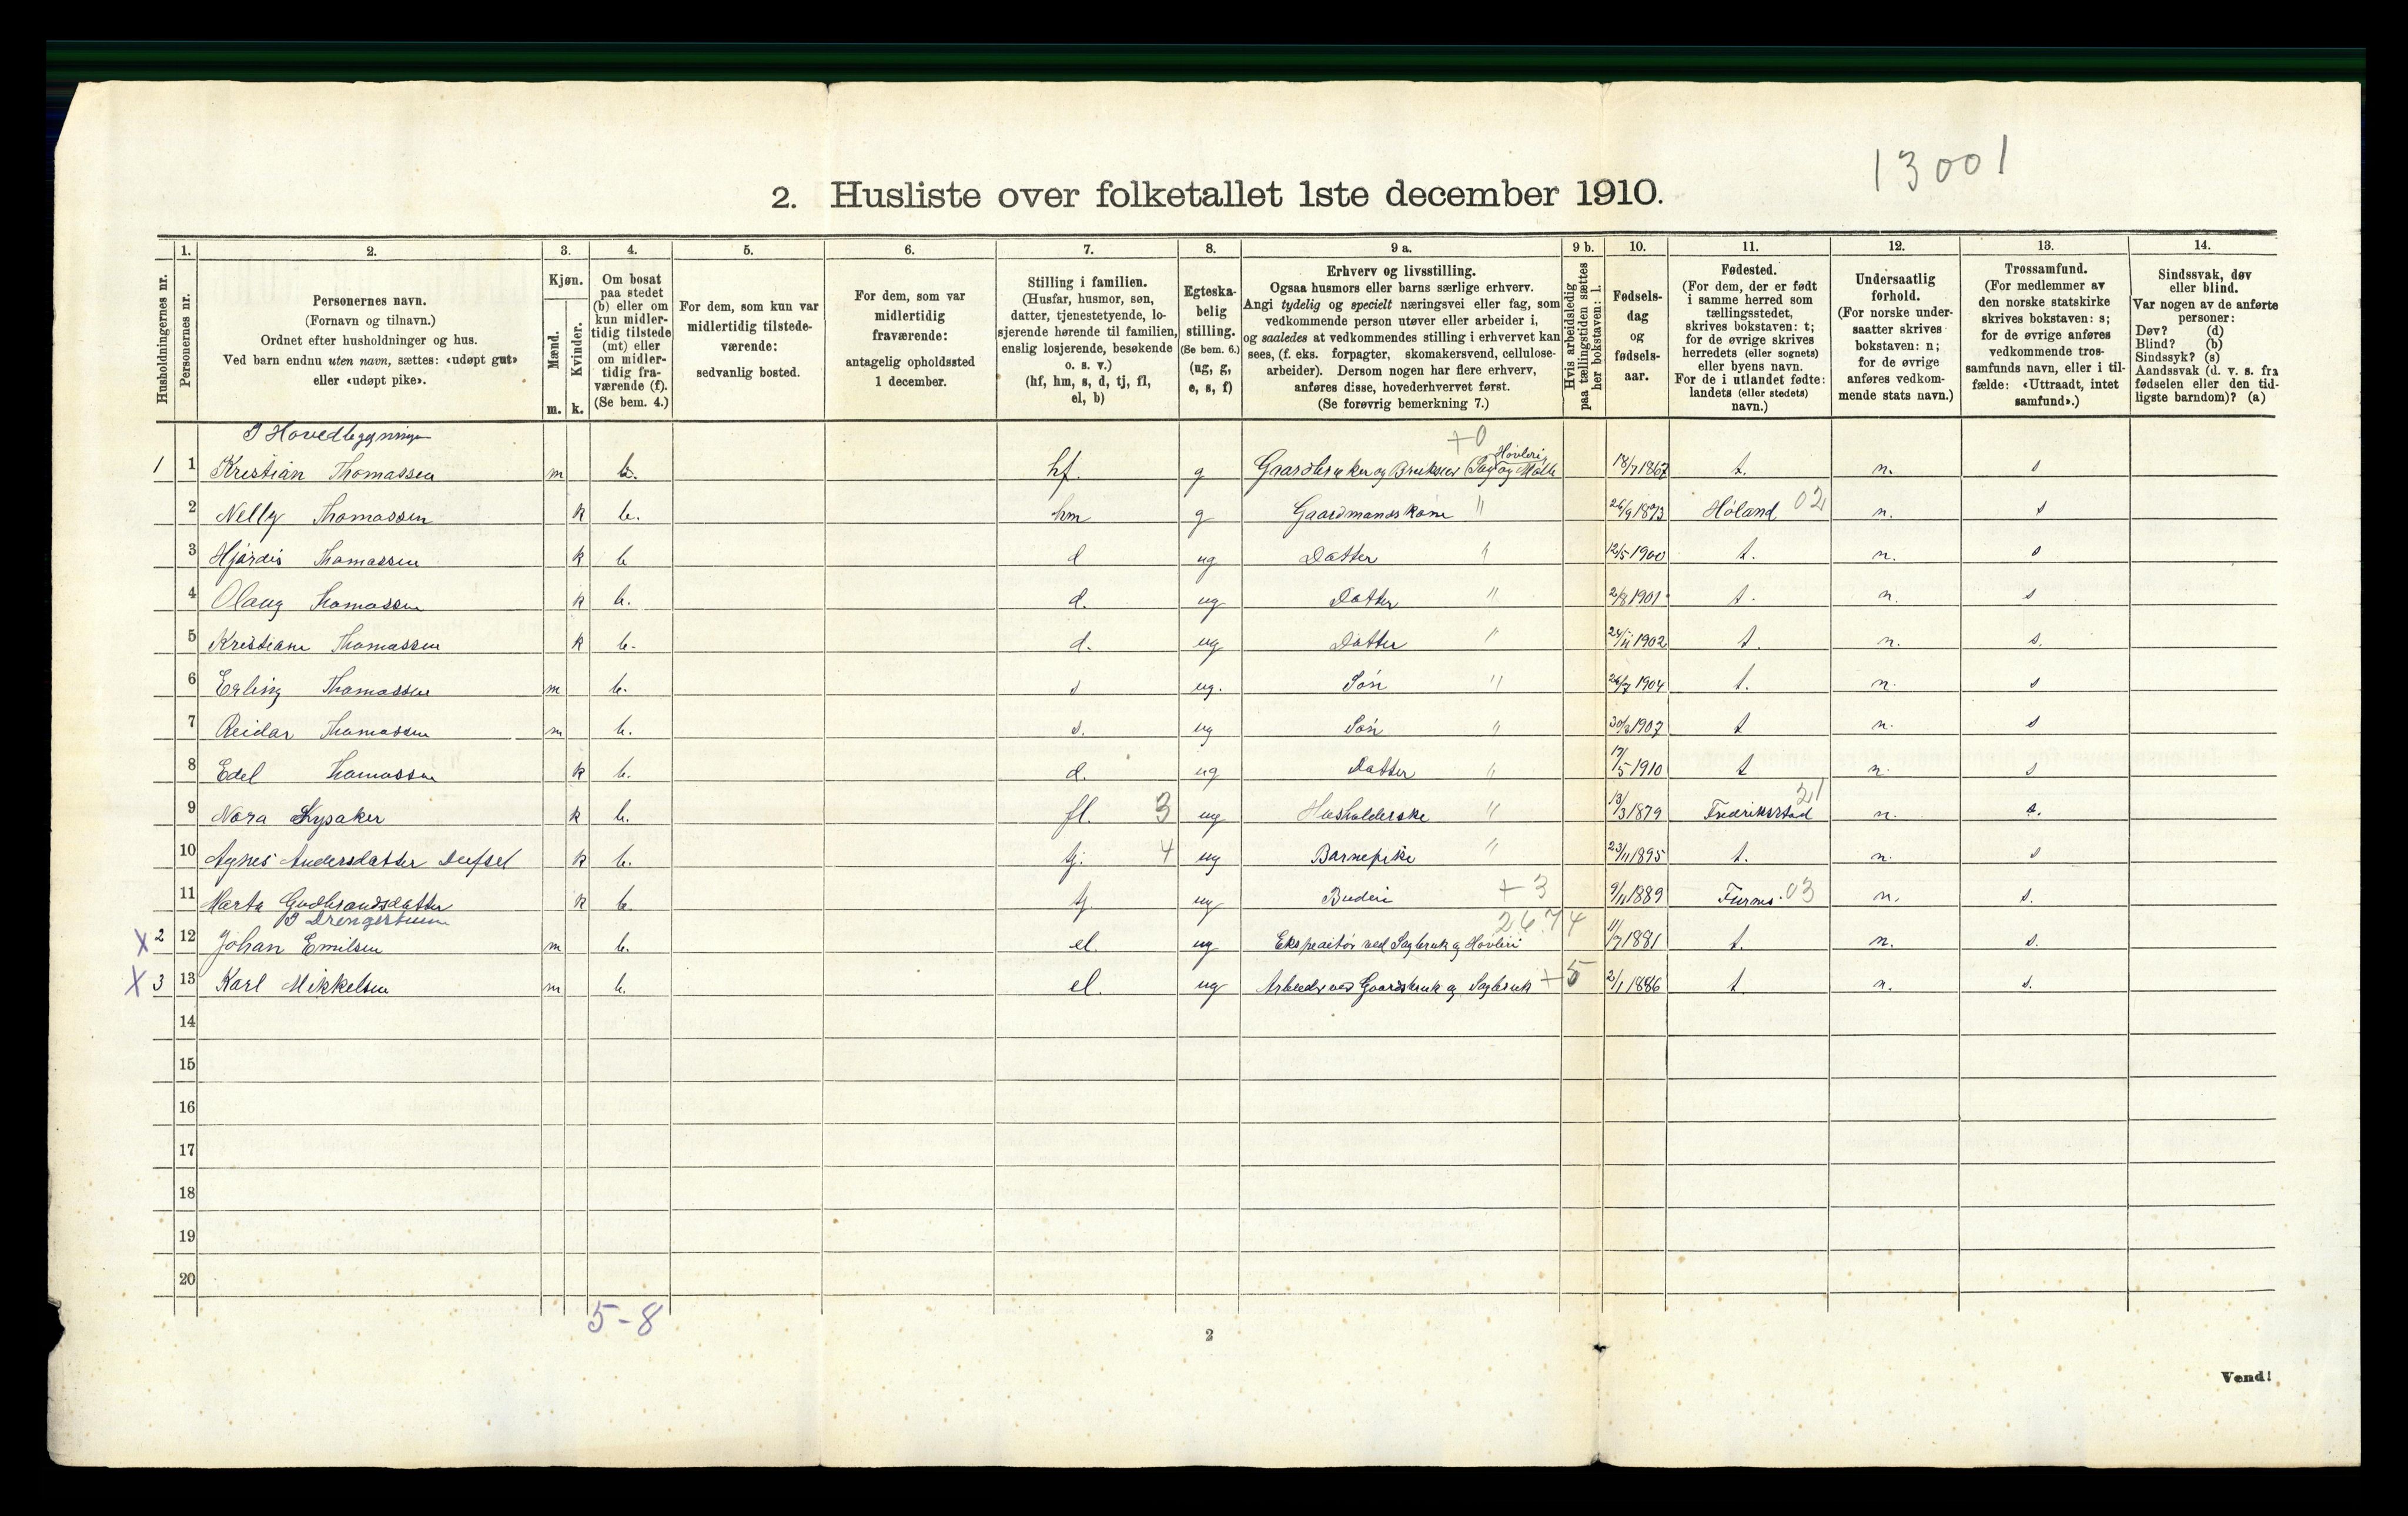 13001
2. Husliste over folketallet 1ste december 1910.
Husholdningernes nr.
1.
Personernes nr.
2.
Personernes navn.
(Fornavn og tilnavn.)
Ordnet efter husholdninger og hus.
Ved barn endnu uten navn, sættes: «udøpt gut»
eller «udøpt pike».
3.
Kjøn.
Mænd.
Kvinder.
m. k.
4.
Om bosat
paa stedet
(b) eller om
kun midler-
tidig tilstede
(mt) eller
om midler-
tidig fra-
værende (f).
(Se bem. 4.)
5.
For dem, som kun var
midlertidig tilstede-
værende:
sedvanlig bosted.
6.
For dem, som var
midlertidig
fraværende:
antagelig opholdssted
1 december.
7.
Stilling i familien.
(Husfar, husmor, søn,
datter, tjenestetyende, lo-
sjerende hørende til familien,
enslig losjerende, besøkende
o. s. v.)
(hf, hm, s, d, tj, fl,
el, b)
8.
Egteska-
belig
stilling.
(Se bem. 6.)
(ug, g,
e, s, f)
9 a.
Erhverv og livsstilling.
Ogsaa husmors eller barns særlige erhverv.
Angi tydelig og specielt næringsvei eller fag, som
vedkommende person utøver eller arbeider i,
og saaledes at vedkommendes stilling i erhvervet kan
sees, (f. eks. forpagter, skomakersvend, cellulose-
arbeider). Dersom nogen har flere erhverv,
anføres disse, hovederhvervet først.
(Se forøvrig bemerkning 7.)
9 b.
Hvis arbeidsledig
paa tællingstiden sættes
her bokstaven: l.
10.
Fødsels-
dag
og
fødsels-
aar.
11.
Fødested.
(For dem, der er født
i samme herred som
tællingsstedet,
skrives bokstaven: t;
for de øvrige skrives
herredets (eller sognets)
eller byens navn.
For de i utlandet fødte:
landets (eller stedets)
navn.)
12.
Undersaatlig
forhold.
(For norske under-
saatter skrives
bokstaven: n;
for de øvrige
anføres vedkom-
mende stats navn.)
13.
Trossamfund.
(For medlemmer av
den norske statskirke
skrives bokstaven: s;
for de øvrige anføres
vedkommende tros-
samfunds navn, eller i til-
fælde: «Uttraadt, intet
samfund».)
14.
Sindssvak, døv
eller blind.
Var nogen av de anførte
personer:
Døv? (d)
Blind? (b)
Sindssyk? (s)
Aandssvak (d. v. s. fra
fødselen eller den tid-
ligste barndom)? (a)
I Hovedbygningen +0
1 1 Kristian Thomassen m b. hf. g Gaardbruker og Sag og Mølle Høvleri 18/7 1867 t. n. s
2 Nelly Thomassen k b. hm g Gaardmandskone " 26/9 1873 Høland 02 n. s
3 Hjørdis Thomassen k b d ug Datter " 12/5 1900 t. n. s
4 Olaug Thomassen k b. d. ug Datter " 2/8 1901 t. n. s
5 Kristiane Thomassen k b. d. ug Datter " 1902 t. n. s.
6 Erling Thomassen m b. s ug. Søn " 26/7 1904 t. n. s
7 Reidar Thomassen m b. s. ug Søn " 1907 t n. s
8 Edel Thomassen k b. d. ug Datter " 17/5 1910 t n. s
9 Nora k b. fl. 3 ug Husholderske " 13/3 1879 Fredrikstad 21 n. s.
10 Agnes Andersdatter k b. tj. 4 ug Barnepike " 23/11 1895 t. n. s
11 Marta Gudbrandsdatter k b. tj ug Buderi +3 9/11 1889 Furnes. 03 n. s.
I Drengestuen 26.74
X 2 12 Johan Emilsen m b. el. ug Ekspeditør ved Sagbruk og Høvleri 11/7 1881 t. n. s.
X 3 13 Karl Mikkelsen m b. el. ug Arbeider ved Gaardsbruk og Sagbruk +5 2/1 1886 t. n. s.
14
15
16
17
18
19
20
5-8
2
Vend!